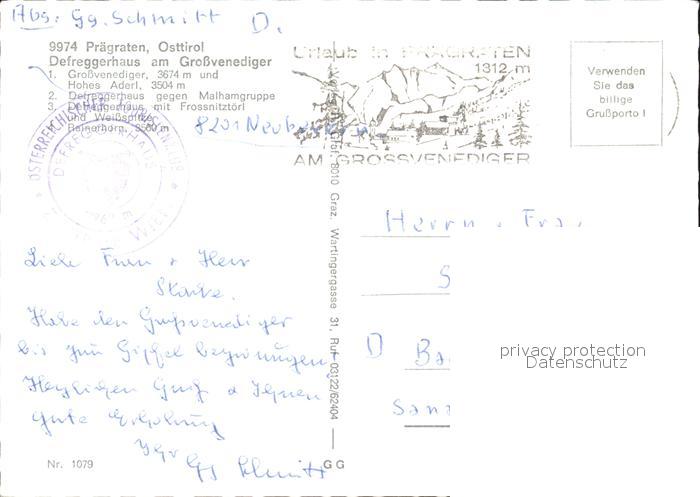 Abs: Gg. Schmitt D.
9974 Prägraten, Osttirol
Defreggerhaus am Großvenediger
1. Großvenediger, 3674 m und
Hohes Aderl, 3504 m
2. Defreggerhaus gegen Malhamgruppe
3. Defreggerhaus mit Frossnitztörl
und Weißspitze,
Rainerhorn, 3560 m
8201
ÖSTERREICHISCHER
DEFREGGERHAUS
WIEN
Urlaub in PRÄGRATEN
1312 m
AM GROSSVENEDIGER
Verwenden
Sie das
billige
Grußporto !
8010 Graz, Wartingergasse 31, Ruf 03122/62404
Liebe Frau + Herr
Starke.
Habe den Großvenediger
bis zum Gipfel bezwungen
Herzlichen Gruß & Ihnen
gute Erholung
Ihr
Gg Schmitt
Nr. 1079
GG
Herrn + Fra
S
D Ba
San
privacy protection
Datenschutz